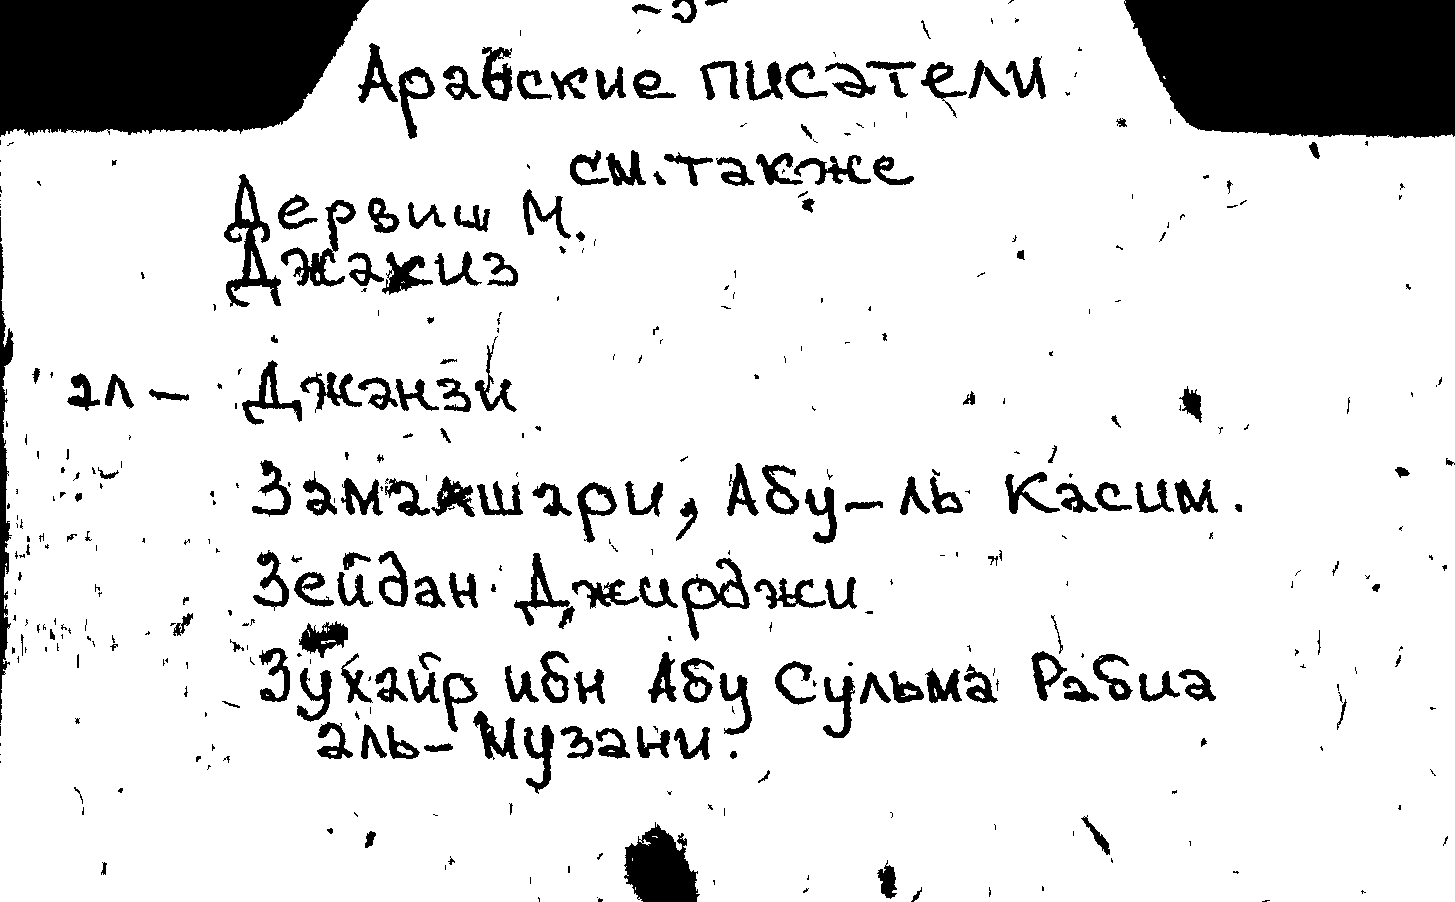 -3-
Арабские писатели
см. также
Дервиш М.
Джахиз
ал- Джанзи
Замахшари, Абу-ль Касим.
Зейдан Джирджи
Зухайр ибн Абу Сульма Рабиа
аль-Музани.